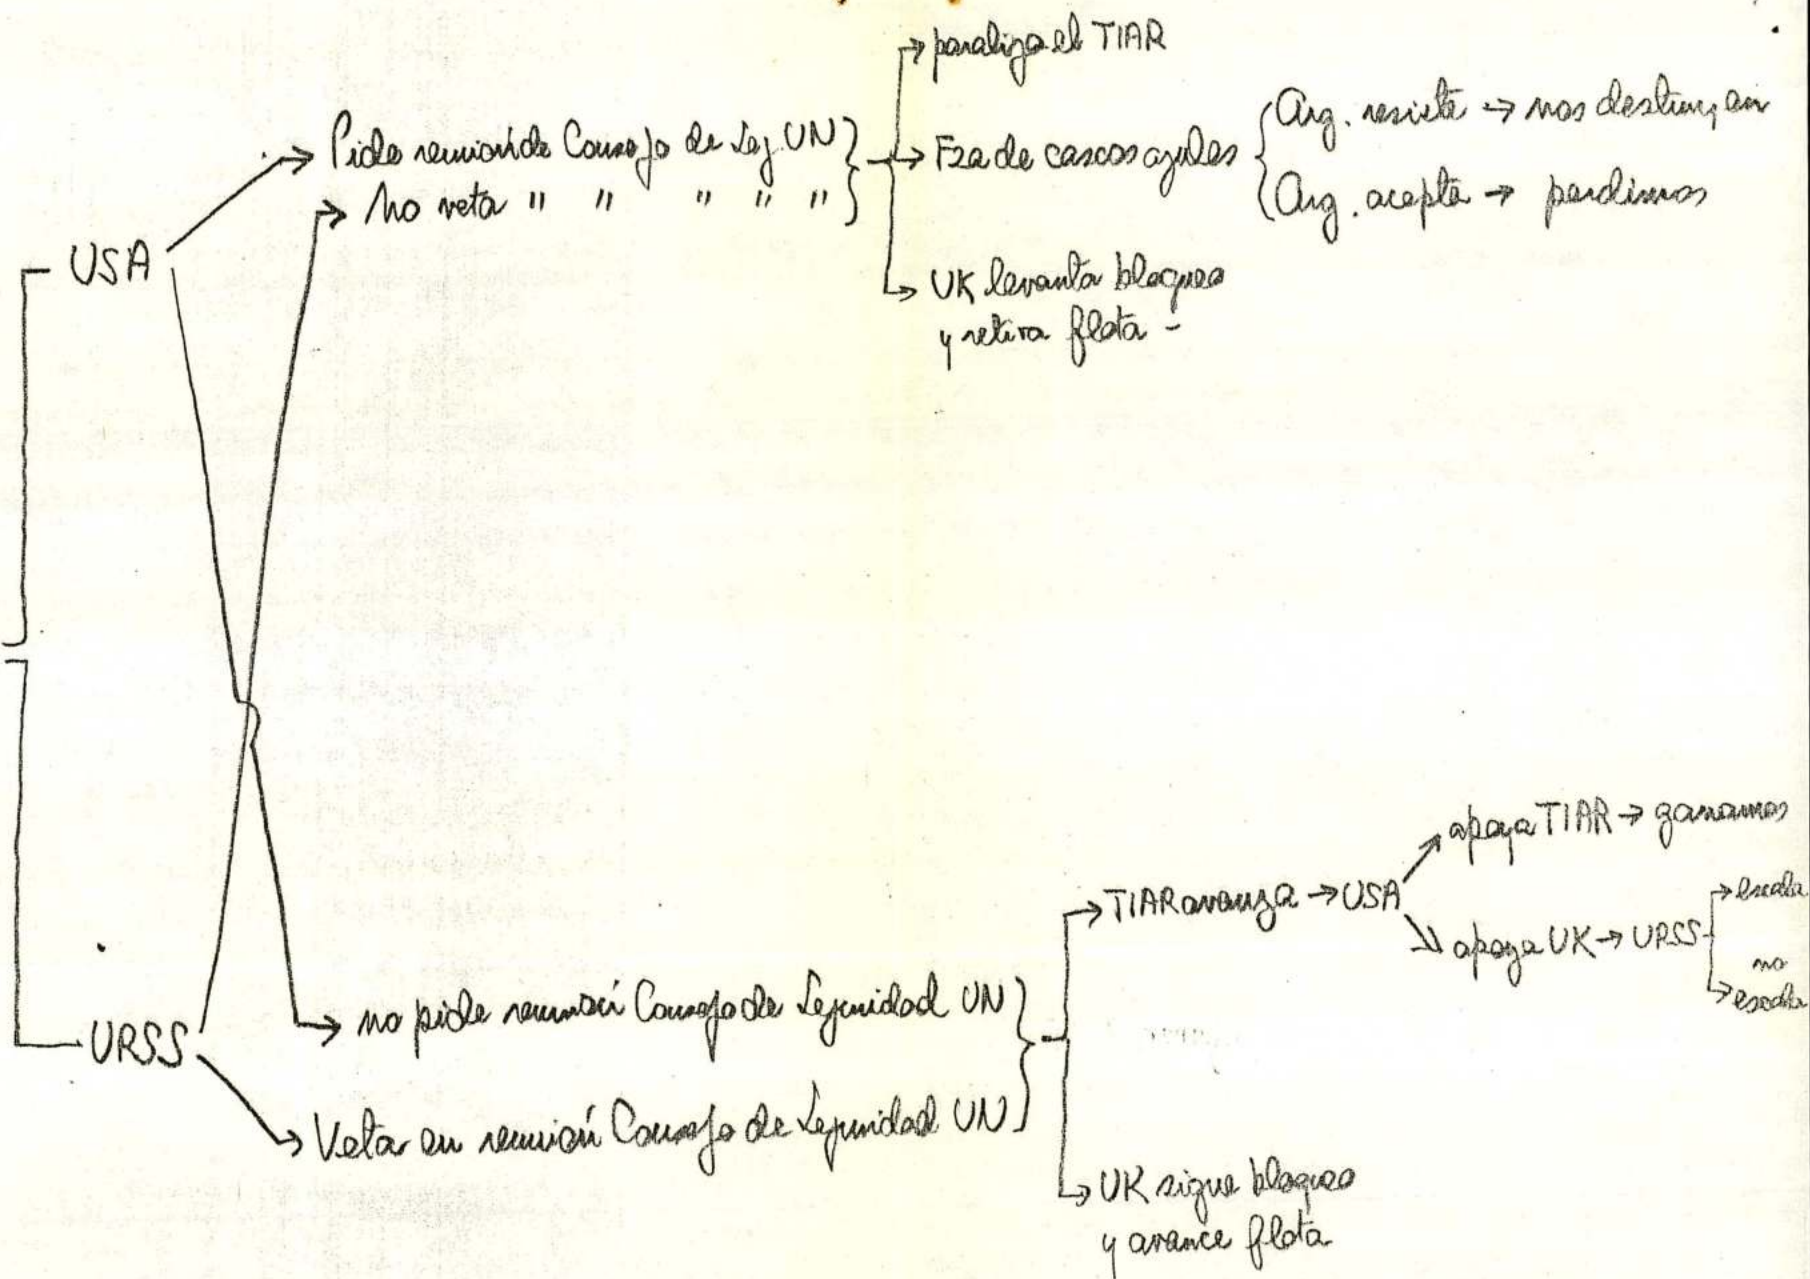 USA
Pide reunión de Consejo de Seg UN
No veta " " " " "
paraliza el TIAR
Fza de cascos azules
Arg. resiste → nos destruyen
Arg. acepta → perdimos
UK levanta bloqueo
y retira flota -
URSS
no pide reunión Consejo de Seguridad UN
Veta en reunión Consejo de Seguridad UN
TIAR avanza → USA
apoya TIAR → ganamos
apoya UK → URSS
escala
no
escala
UK sigue bloqueo
y avance flota